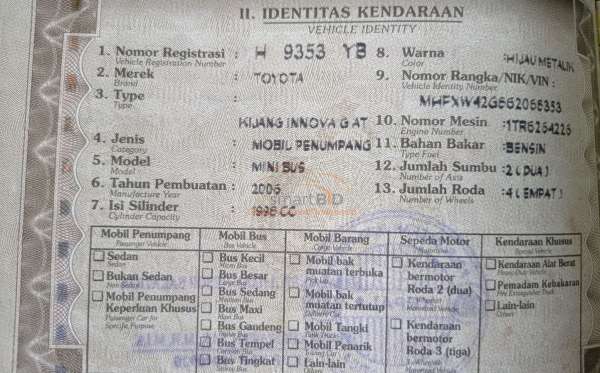 II. IDENTITAS KENDARAAN
VEHICLE IDENTITY
1. Nomor Registrasi : H 9353 YB
Vehicle Registration Number
2. Merek : TOYOTA
Brand
3. Type :
Type
KIJANG INNOVA G AT
4. Jenis : MOBIL PENUMPANG
Category
5. Model : MINI BUS
Model
6. Tahun Pembuatan : 2006
Manufacture Year
7. Isi Silinder : 1998 CC
Cylinder Capacity
8. Warna : HIJAU METALIK
Color
9. Nomor Rangka/NIK/VIN :
Vehicle Identity Number
MHFXW42G662066353
10. Nomor Mesin : 1TR6264226
Engine Number
11. Bahan Bakar : BENSIN
Type Fuel
12. Jumlah Sumbu : 2 ( DUA )
Number of Axis
13. Jumlah Roda : 4 ( EMPAT )
Number of Wheels
smartBID
Mobil Penumpang
Passenger Vehicle
Sedan
Sedan
Bukan Sedan
Non Sedan
Mobil Penumpang
Keperluan Khusus
Passenger Car for
Specific Purpose
Mobil Bus
Bus Vehicle
Bus Kecil
Bus Besar
Bus Sedang
Bus Maxi
Bus Gandeng
Bus Tempel
Bus Tingkat
Mobil Barang
Mobil bak
muatan terbuka
Mobil bak
muatan tertutup
Mobil Tangki
Mobil Penarik
Lain-lain
Sepeda Motor
Kendaraan
bermotor
Roda 2 (dua)
Kendaraan
bermotor
Roda 3 (tiga)
Kendaraan Khusus
Kendaraan Alat Berat
Pemadam Kebakaran
Lain-lain